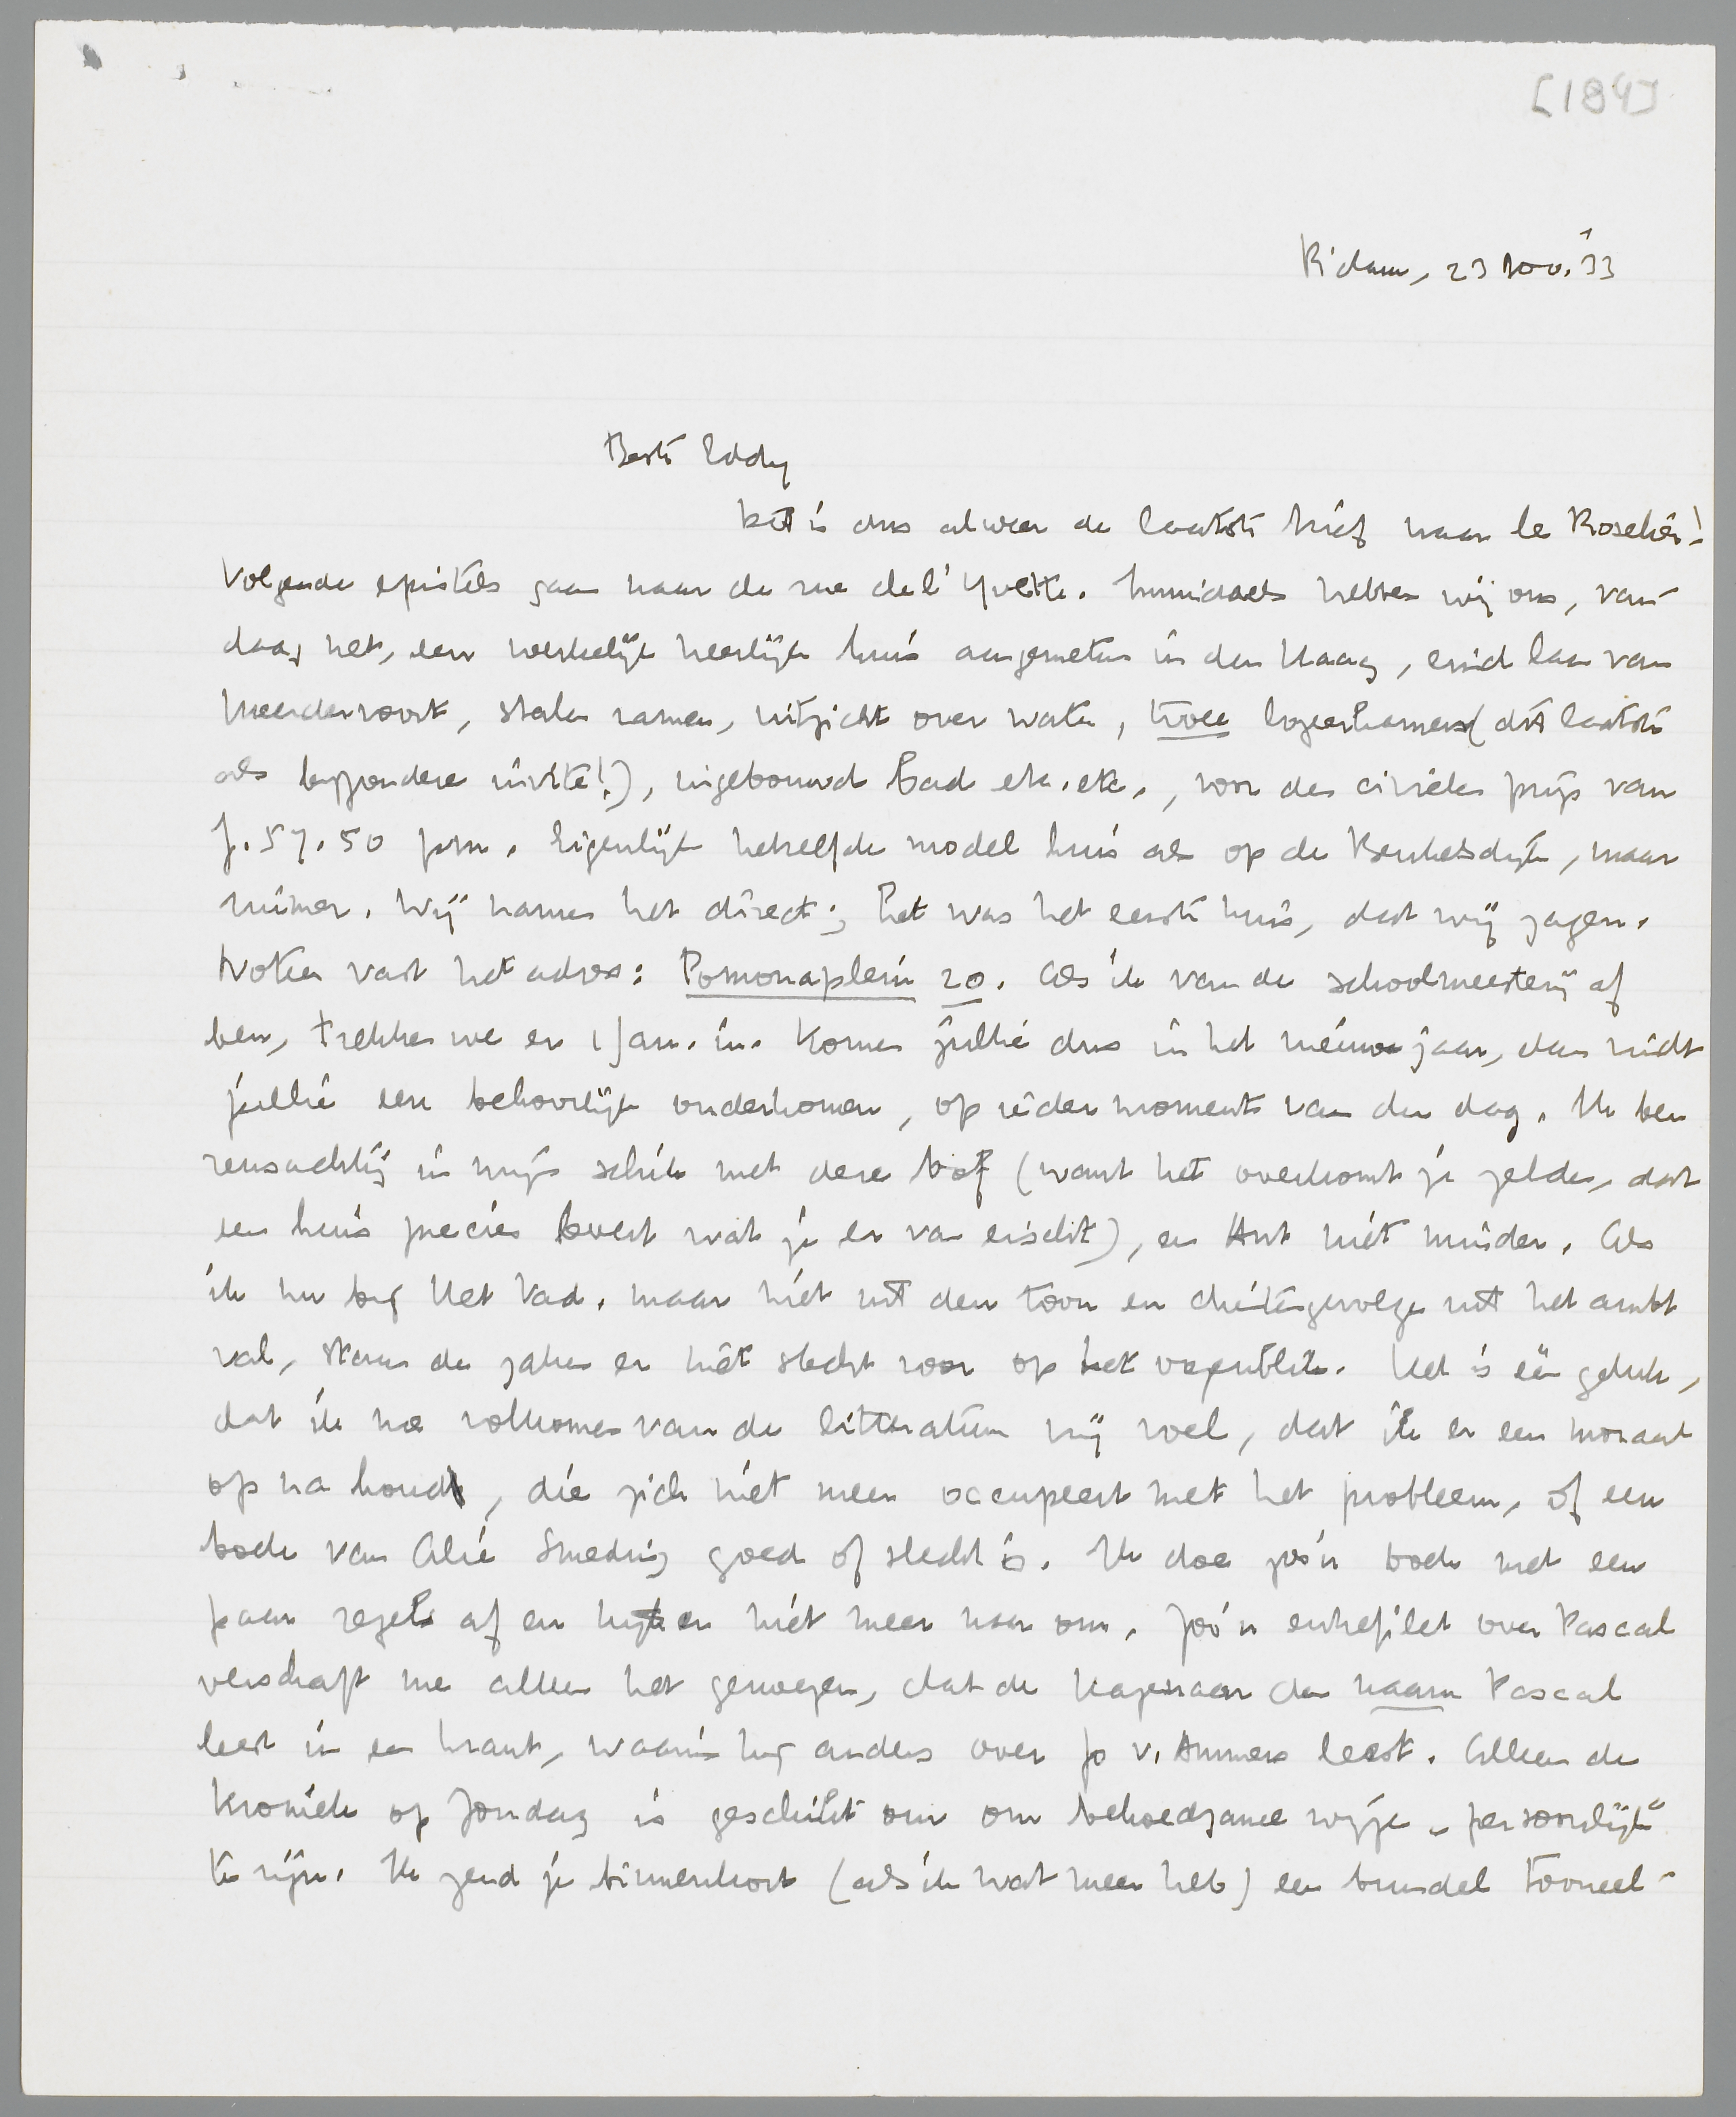 [184]
R'dam, 23 Nov. '33
Beste Eddy
Dit is dus alweer de laatste brief naar le Roselier!
Volgende epistels gaan naar de rue de l'Yvette. Inmiddels hebben wij ons, van-
daag net, een werkelijk heerlijk huis aangemeten in den Haag, eind laan van
Meerdervoort, stalen ramen, uitzicht over water, twee logeerkamers (dit laatste
als bijzondere invite!), ingebouwd bad etc. etc., voor den civielen prijs van
f. 57.50 p.m. Eigenlijk hetzelfde model huis als op de Bentelsdijk, maar
ruimer. Wij namen het direct; het was het eerste huis, dat wij zagen.
Noteer vast het adres: Pomonaplein 20. Als ik van de schoolmeesterij af
ben, trekken we er 1 Jan. in. Komen jullie dus in het nieuwe jaar, dan vindt
jullie een behoorlijk onderkomen, op ieder moment van den dag. Ik ben
reusachtig in mijn schik met deze bof (want het overkomt je zelden, dat
een huis precies levert wat je er van eischt), en Ant niet minder. Als
ik nu bij Het Vad. maar niet uit den toon en dientengevolge uit het ambt
val, staan de zaken er niet slecht voor op het oogenblik. Het is één geluk,
dat ik me volkomen van de litteratuur vrij voel, dat ik er een moraal
op na houd, die zich niet meer occupeert met het probleem, of een
boek van Alie Smeding goed of slecht is. Ik doe zoo'n boek met een
paar regels af en kijk er niet meer naar om. Zoo'n entrefilet over Pascal
verschaft me alleen het genoegen, dat de Hagenaar den naam Pascal
leest in een krant, waarin hij anders over Jo v. Ammers leest. Alleen de
kroniek op Zondag is geschikt om om behoedzame wijze „persoonlijk"
te zijn. Ik zend je binnenkort (als ik wat meer heb) een bundel tooneel-